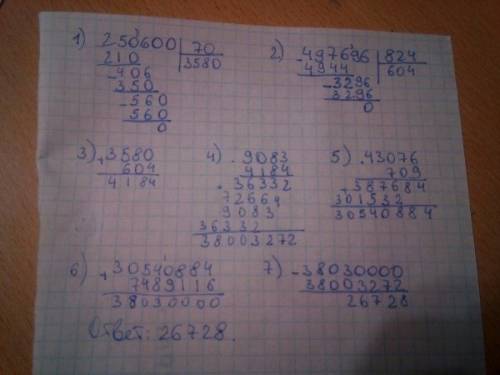 1) 250600 | 70
210 | 3580
-406
350
-560
560
0
2) -497696 | 824
4944 | 604
-3296
3296
0
3) +3580
604
4184
4) .9083
4184
+36332
72664
9083
36332
38003272
5) .43076
709
+387684
301532
30540884
6) +30540884
7489116
38030000
7) -38030000
38003272
26728
Ответ: 26728.